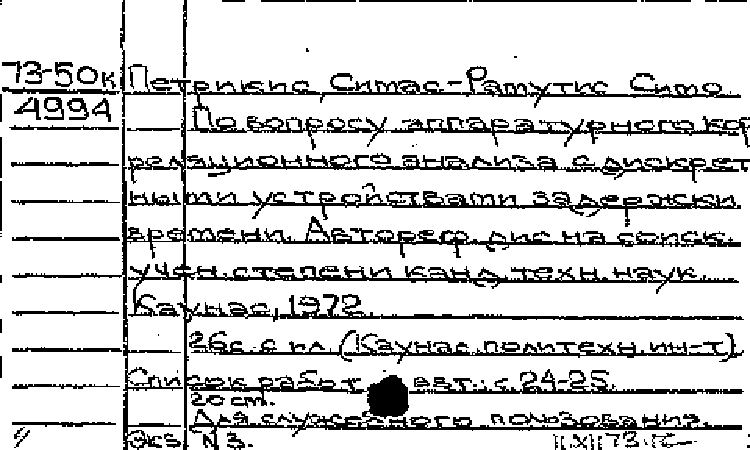 73-50к Петрикис, Симас-Рамутис Симо.
4994 По вопросу аппаратурного кор
реляционного анализа с дискрет
ными устройствами задержки
времени. Автореф. дис на соиск.
учен. степени канд. техн. наук.
Каунас, 1972.
26с. с ил. (Каунас. политехн. ин-т)
Список работ авт.: с. 24-25.
20 cm.
Для служебного пользования.
Экз. №3.